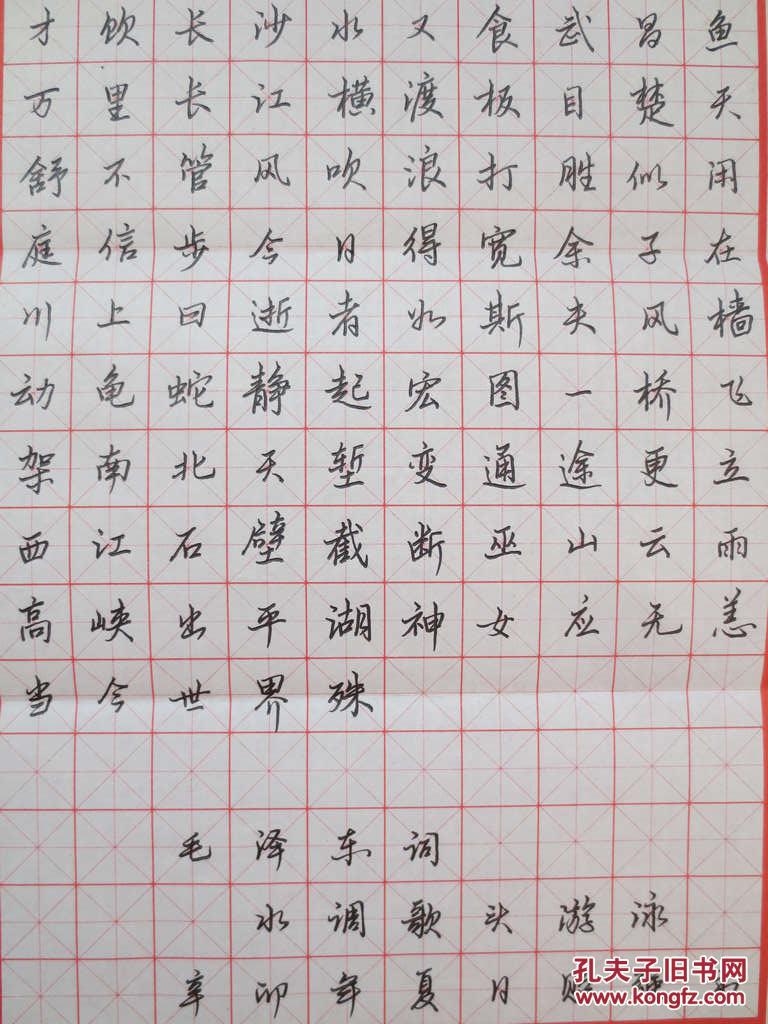 才饮长沙水又食武昌鱼
万里长江横渡极目楚天
舒不管风吹浪打胜似闲
庭信步今日得宽余子在
川上曰逝者如斯夫风樯
动龟蛇静起宏图一桥飞
架南北天堑变通途更立
西江石壁截断巫山云雨
高峡出平湖神女应无恙
当今世界殊
毛泽东词
水调歌头游泳
辛卯年夏日
孔夫子旧书网
www.kongfz.com